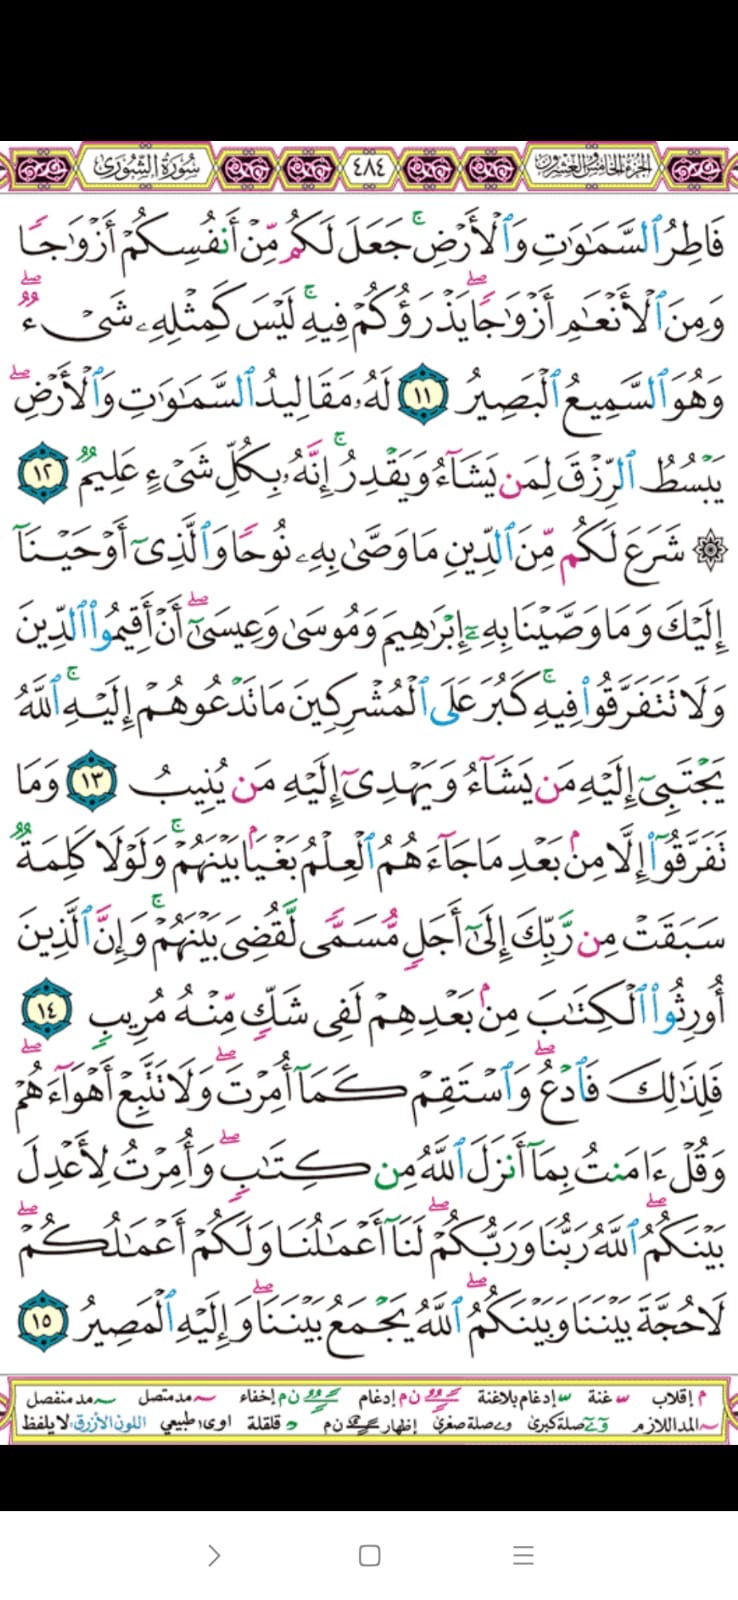 الجزء الخامس والعشرون ٤٨٤ سورة الشورى
فَاطِرُ ٱلسَّمَٰوَٰتِ وَٱلْأَرْضِ ۚ جَعَلَ لَكُم مِّنْ أَنفُسِكُمْ أَزْوَٰجًا
وَمِنَ ٱلْأَنْعَٰمِ أَزْوَٰجًا ۖ يَذْرَؤُكُمْ فِيهِ ۚ لَيْسَ كَمِثْلِهِۦ شَىْءٌ ۖ
وَهُوَ ٱلسَّمِيعُ ٱلْبَصِيرُ ١١ لَهُۥ مَقَالِيدُ ٱلسَّمَٰوَٰتِ وَٱلْأَرْضِ ۖ
يَبْسُطُ ٱلرِّزْقَ لِمَن يَشَآءُ وَيَقْدِرُ ۚ إِنَّهُۥ بِكُلِّ شَىْءٍ عَلِيمٌ ١٢
۞ شَرَعَ لَكُم مِّنَ ٱلدِّينِ مَا وَصَّىٰ بِهِۦ نُوحًا وَٱلَّذِىٓ أَوْحَيْنَآ
إِلَيْكَ وَمَا وَصَّيْنَا بِهِۦٓ إِبْرَٰهِيمَ وَمُوسَىٰ وَعِيسَىٰٓ ۖ أَنْ أَقِيمُوا۟ ٱلدِّينَ
وَلَا تَتَفَرَّقُوا۟ فِيهِ ۚ كَبُرَ عَلَى ٱلْمُشْرِكِينَ مَا تَدْعُوهُمْ إِلَيْهِ ۚ ٱللَّهُ
يَجْتَبِىٓ إِلَيْهِ مَن يَشَآءُ وَيَهْدِىٓ إِلَيْهِ مَن يُنِيبُ ١٣ وَمَا
تَفَرَّقُوٓا۟ إِلَّا مِنۢ بَعْدِ مَا جَآءَهُمُ ٱلْعِلْمُ بَغْيًۢا بَيْنَهُمْ ۚ وَلَوْلَا كَلِمَةٌ
سَبَقَتْ مِن رَّبِّكَ إِلَىٰٓ أَجَلٍ مُّسَمًّى لَّقُضِىَ بَيْنَهُمْ ۚ وَإِنَّ ٱلَّذِينَ
أُورِثُوا۟ ٱلْكِتَٰبَ مِنۢ بَعْدِهِمْ لَفِى شَكٍّ مِّنْهُ مُرِيبٍ ١٤
فَلِذَٰلِكَ فَٱدْعُ ۖ وَٱسْتَقِمْ كَمَآ أُمِرْتَ ۖ وَلَا تَتَّبِعْ أَهْوَآءَهُمْ ۖ
وَقُلْ ءَامَنتُ بِمَآ أَنزَلَ ٱللَّهُ مِن كِتَٰبٍ ۖ وَأُمِرْتُ لِأَعْدِلَ
بَيْنَكُمُ ۖ ٱللَّهُ رَبُّنَا وَرَبُّكُمْ ۖ لَنَآ أَعْمَٰلُنَا وَلَكُمْ أَعْمَٰلُكُمْ ۖ
لَا حُجَّةَ بَيْنَنَا وَبَيْنَكُمُ ۖ ٱللَّهُ يَجْمَعُ بَيْنَنَا ۖ وَإِلَيْهِ ٱلْمَصِيرُ ١٥
م إقلاب غنة إدغام بلاغنة ن م إدغام ن م إخفاء مد متصل مد منفصل
المد اللازم صلة كبرى صلة صغرى إظهار ن م قلقلة اوى طبيعي اللون الأزرق: لا يلفظ